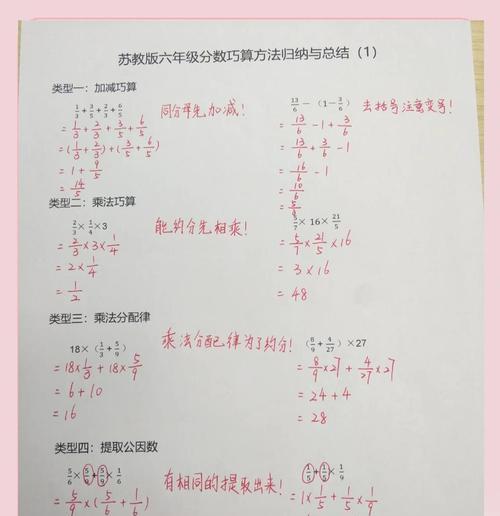 苏教版六年级分数巧算方法归纳与总结（1）
类型一：加减巧算
1/3 + 3/5 + 2/3 + 6/5
= 1/3 + 2/3 + 3/5 + 6/5
= (1/3 + 2/3) + (3/5 + 6/5)
= 1 + 9/5
= 14/5
同分母先加减！
13/6 − (1−3/6)
= 13/6 − 1 + 3/6
= 13/6 + 3/6 − 1
= 16/6 − 1
= 10/6
= 5/
去括号注意变号！
类型二：乘法巧算
2/3 × 1/4 × 3
= 2/3 × 3 × 1/4
= 2 × 1/4
= 1/2
能约分先相乘！
/7 × 16 × 21/5
= 5/7 × 21/5 × 16
= 3 × 16
= 48
类型三：乘法分配律
18×（1/3 + 5/9）
= 18×1/3 + 18×5/9
= 6 + 10
= 16
乘法分配律为了约分！
（8/9 + 4/27）×27
= 8/9 ×27 + 4/27 ×27
= 24 + 4
= 28
类型四：提取公因数
5/6 × 5/9 + 5/9 × 1/6
= 5/9 ×(5/6 + 1/6)
有相同的提取出来！
1/5 + 1/5 × 1/9
= 1× 1/5 + 1/5 × 1/9